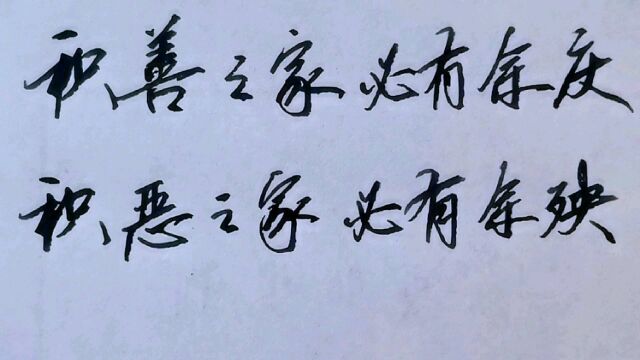 积善之家 必有余庆
积恶之家 必有余殃